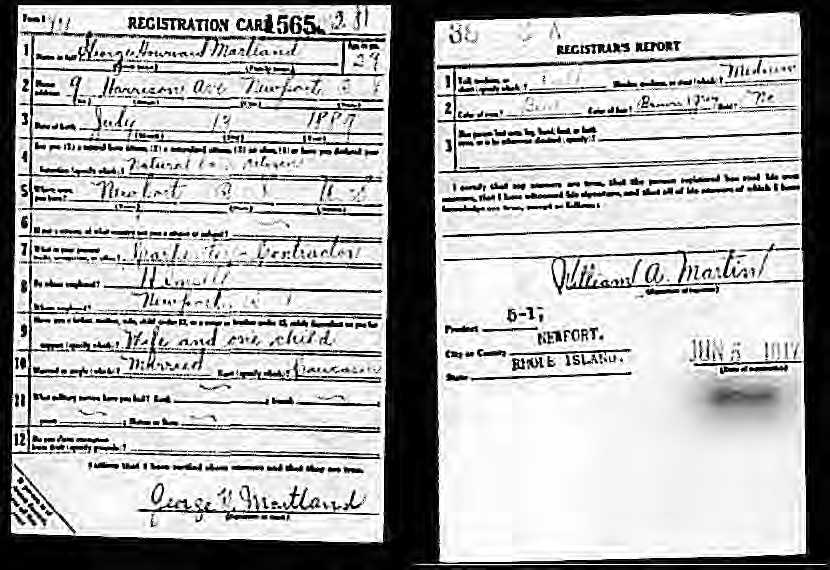 Form 1 REGISTRATION CARD 1565
1 Name in full George Howard Martland Age in yrs. 29
(Given name) (Family name)
2 Home address 9 Harrison Ave Newport R I
(No.) (Street) (City) (State)
3 Date of birth July 13 1887
(Month) (Day) (Year)
4 Are you (1) a natural born citizen, (2) a naturalized citizen, (3) an alien, (4) or have you declared your
intention (specify which)? Natural born citizen
5 Where were you born? Newport R I U S
(Town) (State) (Nation)
6 If not a citizen, of what country are you a citizen or subject?
7 What is your present trade, occupation, or office? Carpenter Contractor
8 By whom employed? Himself
Where employed? Newport R I
9 Have you a father, mother, wife, child under 12, or a sister or brother under 12, solely dependent on you for
support (specify which)? Wife and one child
10 Married or single (which)? Married Race (specify which)? Caucasian
11 What military service have you had? Rank ; branch
years ; Nation or State
12 Do you claim exemption from draft (specify grounds)?
I affirm that I have verified above answers and that they are true.
George H. Martland
(Signature or mark)
REGISTRAR'S REPORT
1 Tall, medium, or short (specify which)? Slender, medium, or stout (which)? Medium
2 Color of eyes? Color of hair? Brown Bald? No
3 Has person lost arm, leg, hand, foot, or both
eyes, or is he otherwise disabled (specify)?
I certify that my answers are true, that the person registered has read his own
answers, that I have witnessed his signature, and that all of his answers of which I have
knowledge are true, except as follows:
William A. Martin
(Signature of registrar)
Precinct 5-1;
City or County NEWPORT.
State RHODE ISLAND.
JUN 5 1917
(Date of registration)